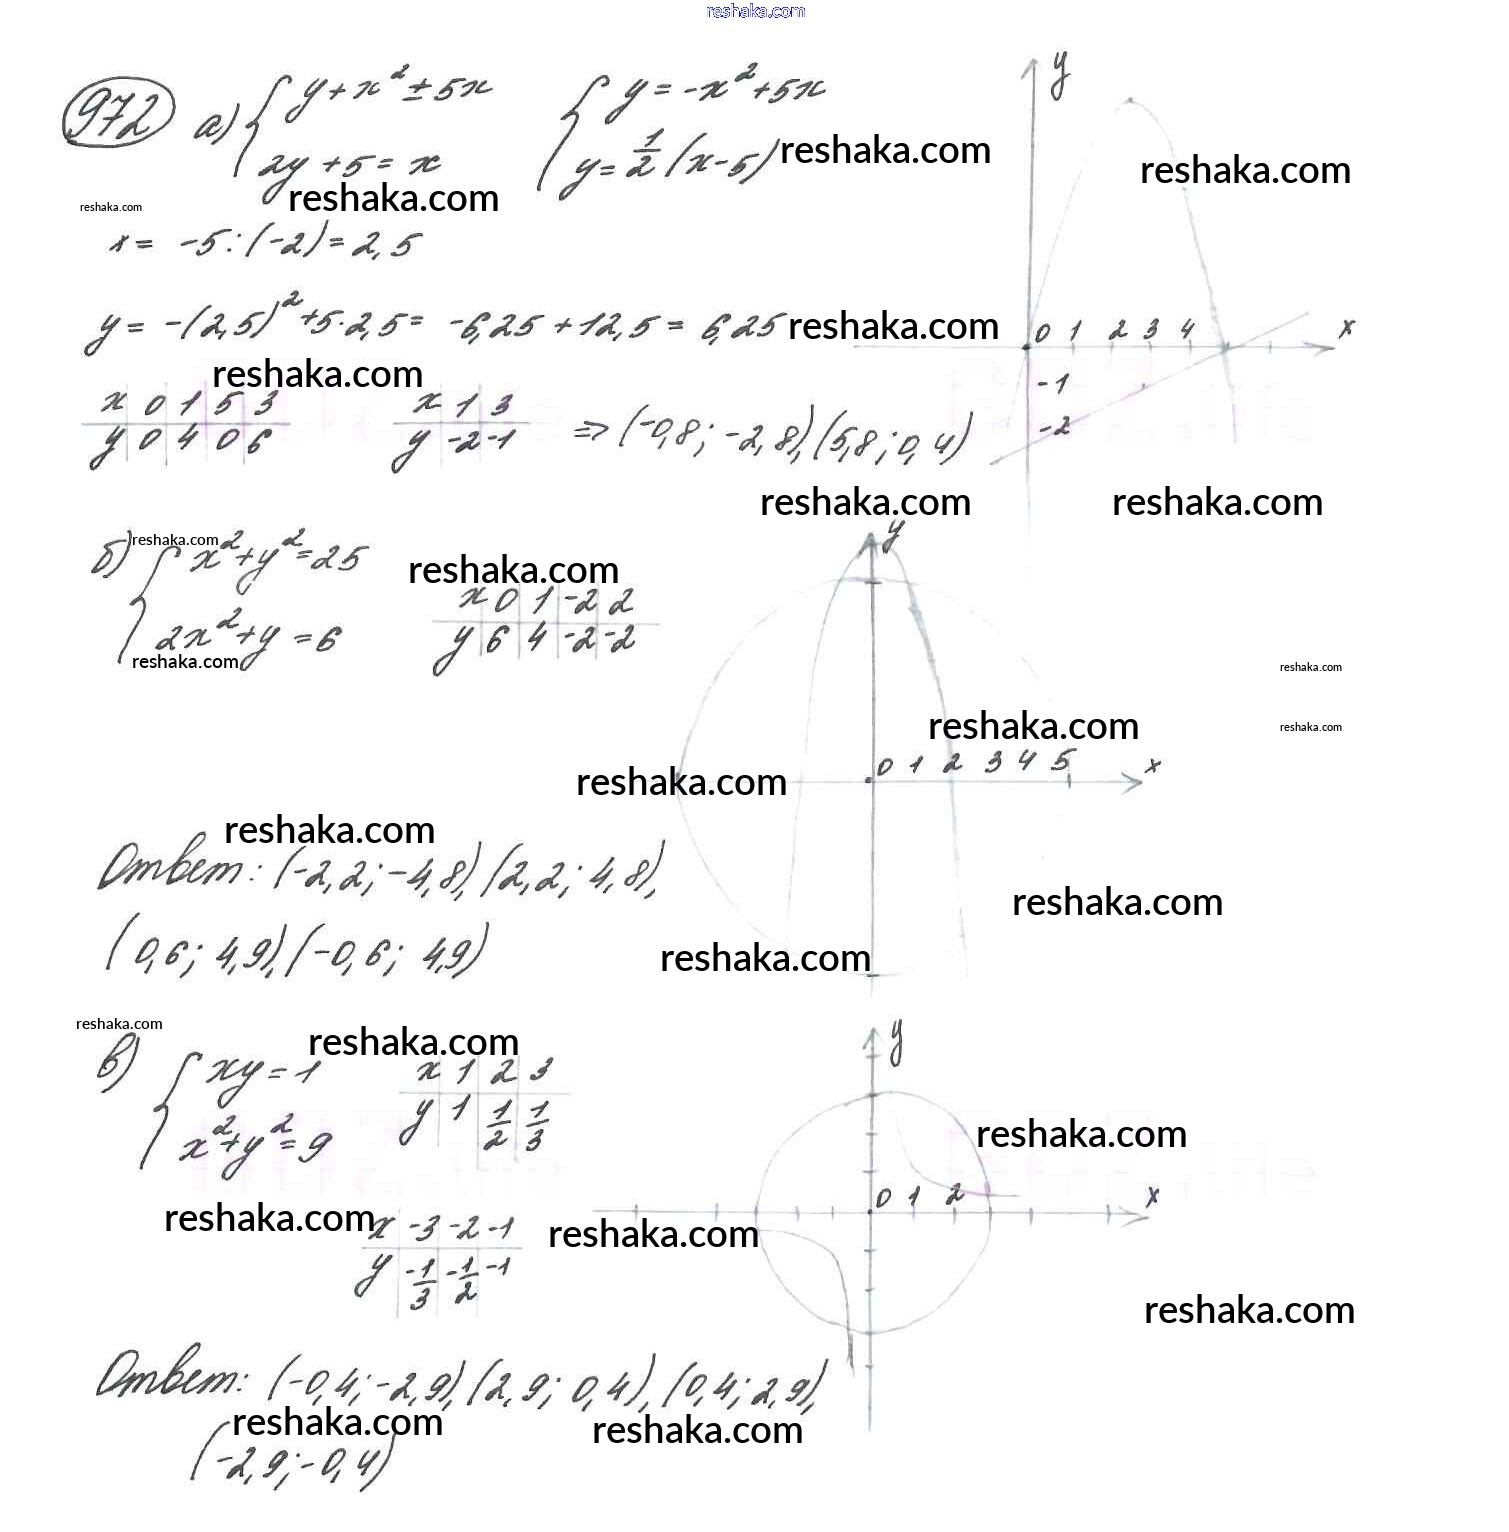 reshaka.com
972 а) { y + x² ± 5x { y = -x² + 5x y
2y + 5 = x y = 1/2 (x - 5) reshaka.com reshaka.com
reshaka.com reshaka.com
x = -5 : (-2) = 2,5
y = -(2,5)² + 5·2,5 = -6,25 + 12,5 = 6,25 reshaka.com 0 1 2 3 4 x
reshaka.com -1
x 0 1 5 3 x 1 3
y 0 4 0 6 y -2 -1 => (-0,8; -2,8), (5,8; 0,4) -2
reshaka.com reshaka.com
б) { x² + y² = 25 reshaka.com reshaka.com y
2x² + y = 6 x 0 1 -2 2
reshaka.com y 6 4 -2 -2
reshaka.com
reshaka.com reshaka.com
reshaka.com 0 1 2 3 4 5 x
reshaka.com
Ответ: (-2,2; -4,8), (2,2; 4,8),
reshaka.com
(0,6; 4,9), (-0,6; 4,9) reshaka.com
reshaka.com
в) { xy = 1 reshaka.com y
x² + y² = 9 x 1 2 3
y 1 1/2 1/3 reshaka.com
reshaka.com x -3 -2 -1 reshaka.com 0 1 2 x
y -1/3 -1/2 -1
reshaka.com
Ответ: (-0,4; -2,9), (2,9; 0,4), (0,4; 2,9),
reshaka.com reshaka.com
(-2,9; -0,4)